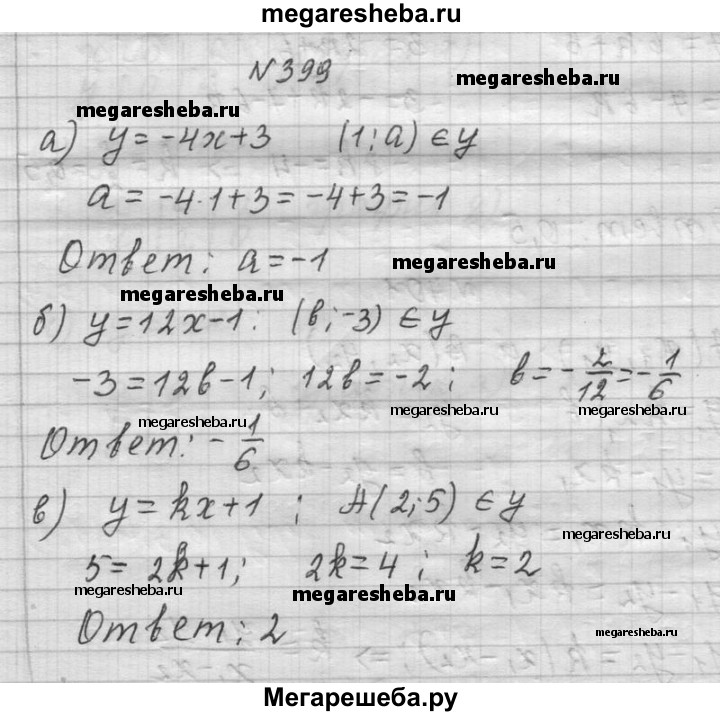 megaresheba.ru
№399
megaresheba.ru
а) y = -4x+3 (1; a) ∈ y
a = -4·1+3 = -4+3 = -1
Ответ: a = -1 megaresheba.ru
megaresheba.ru
б) y = 12x-1: (в; -3) ∈ y
-3 = 12в-1; 12в = -2; в = -2/12 = -1/6
megaresheba.ru megaresheba.ru megaresheba.ru
Ответ: -1/6
в) y = kx+1 ; A(2;5) ∈ y
megaresheba.ru
5 = 2k+1; 2k = 4; k = 2
megaresheba.ru megaresheba.ru
Ответ: 2 megaresheba.ru
Мегарешеба.ру